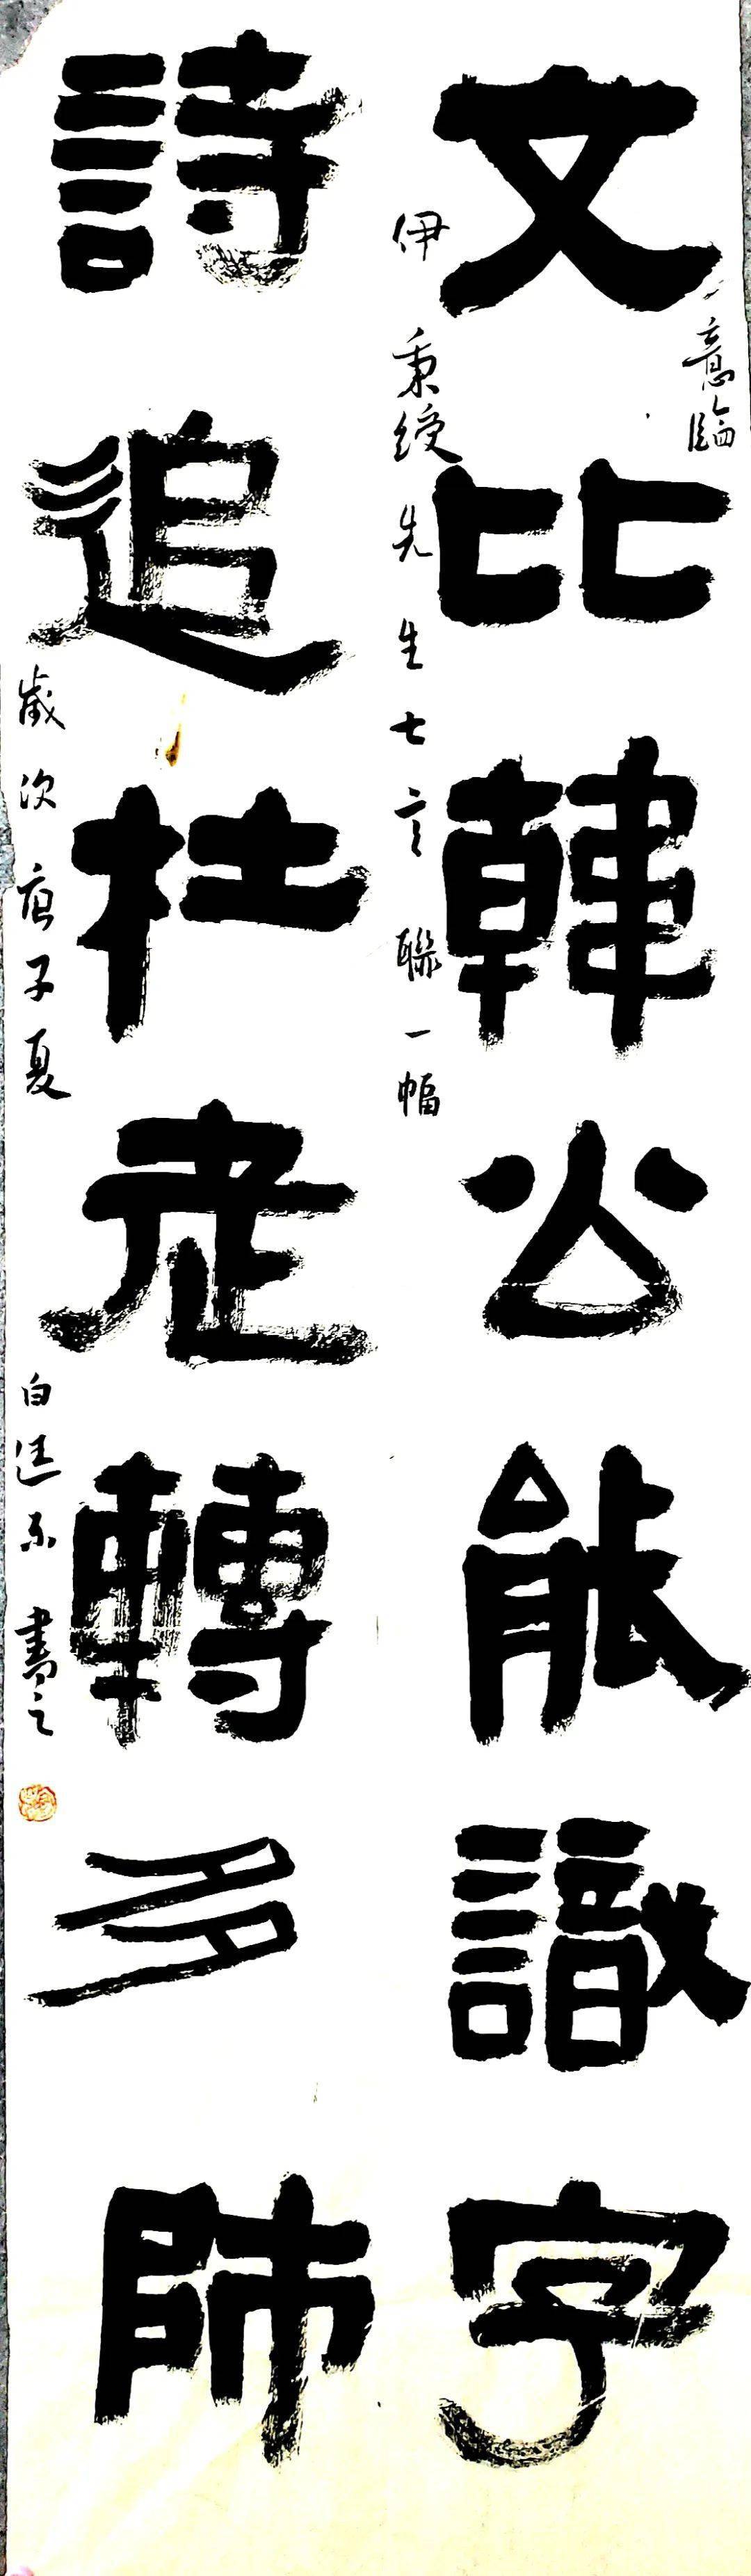 文比韓公能識字
詩追杜老轉多師
意臨
伊秉绶先生七言聯一幅
歲次庚子夏
白廷 書之